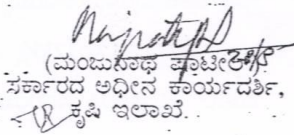 (ಮಂಜುನಾಥ ಪಾಟೀಲ)
ಸರ್ಕಾರದ ಅಧೀನ ಕಾರ್ಯದರ್ಶಿ,
ಕೃಷಿ ಇಲಾಖೆ.